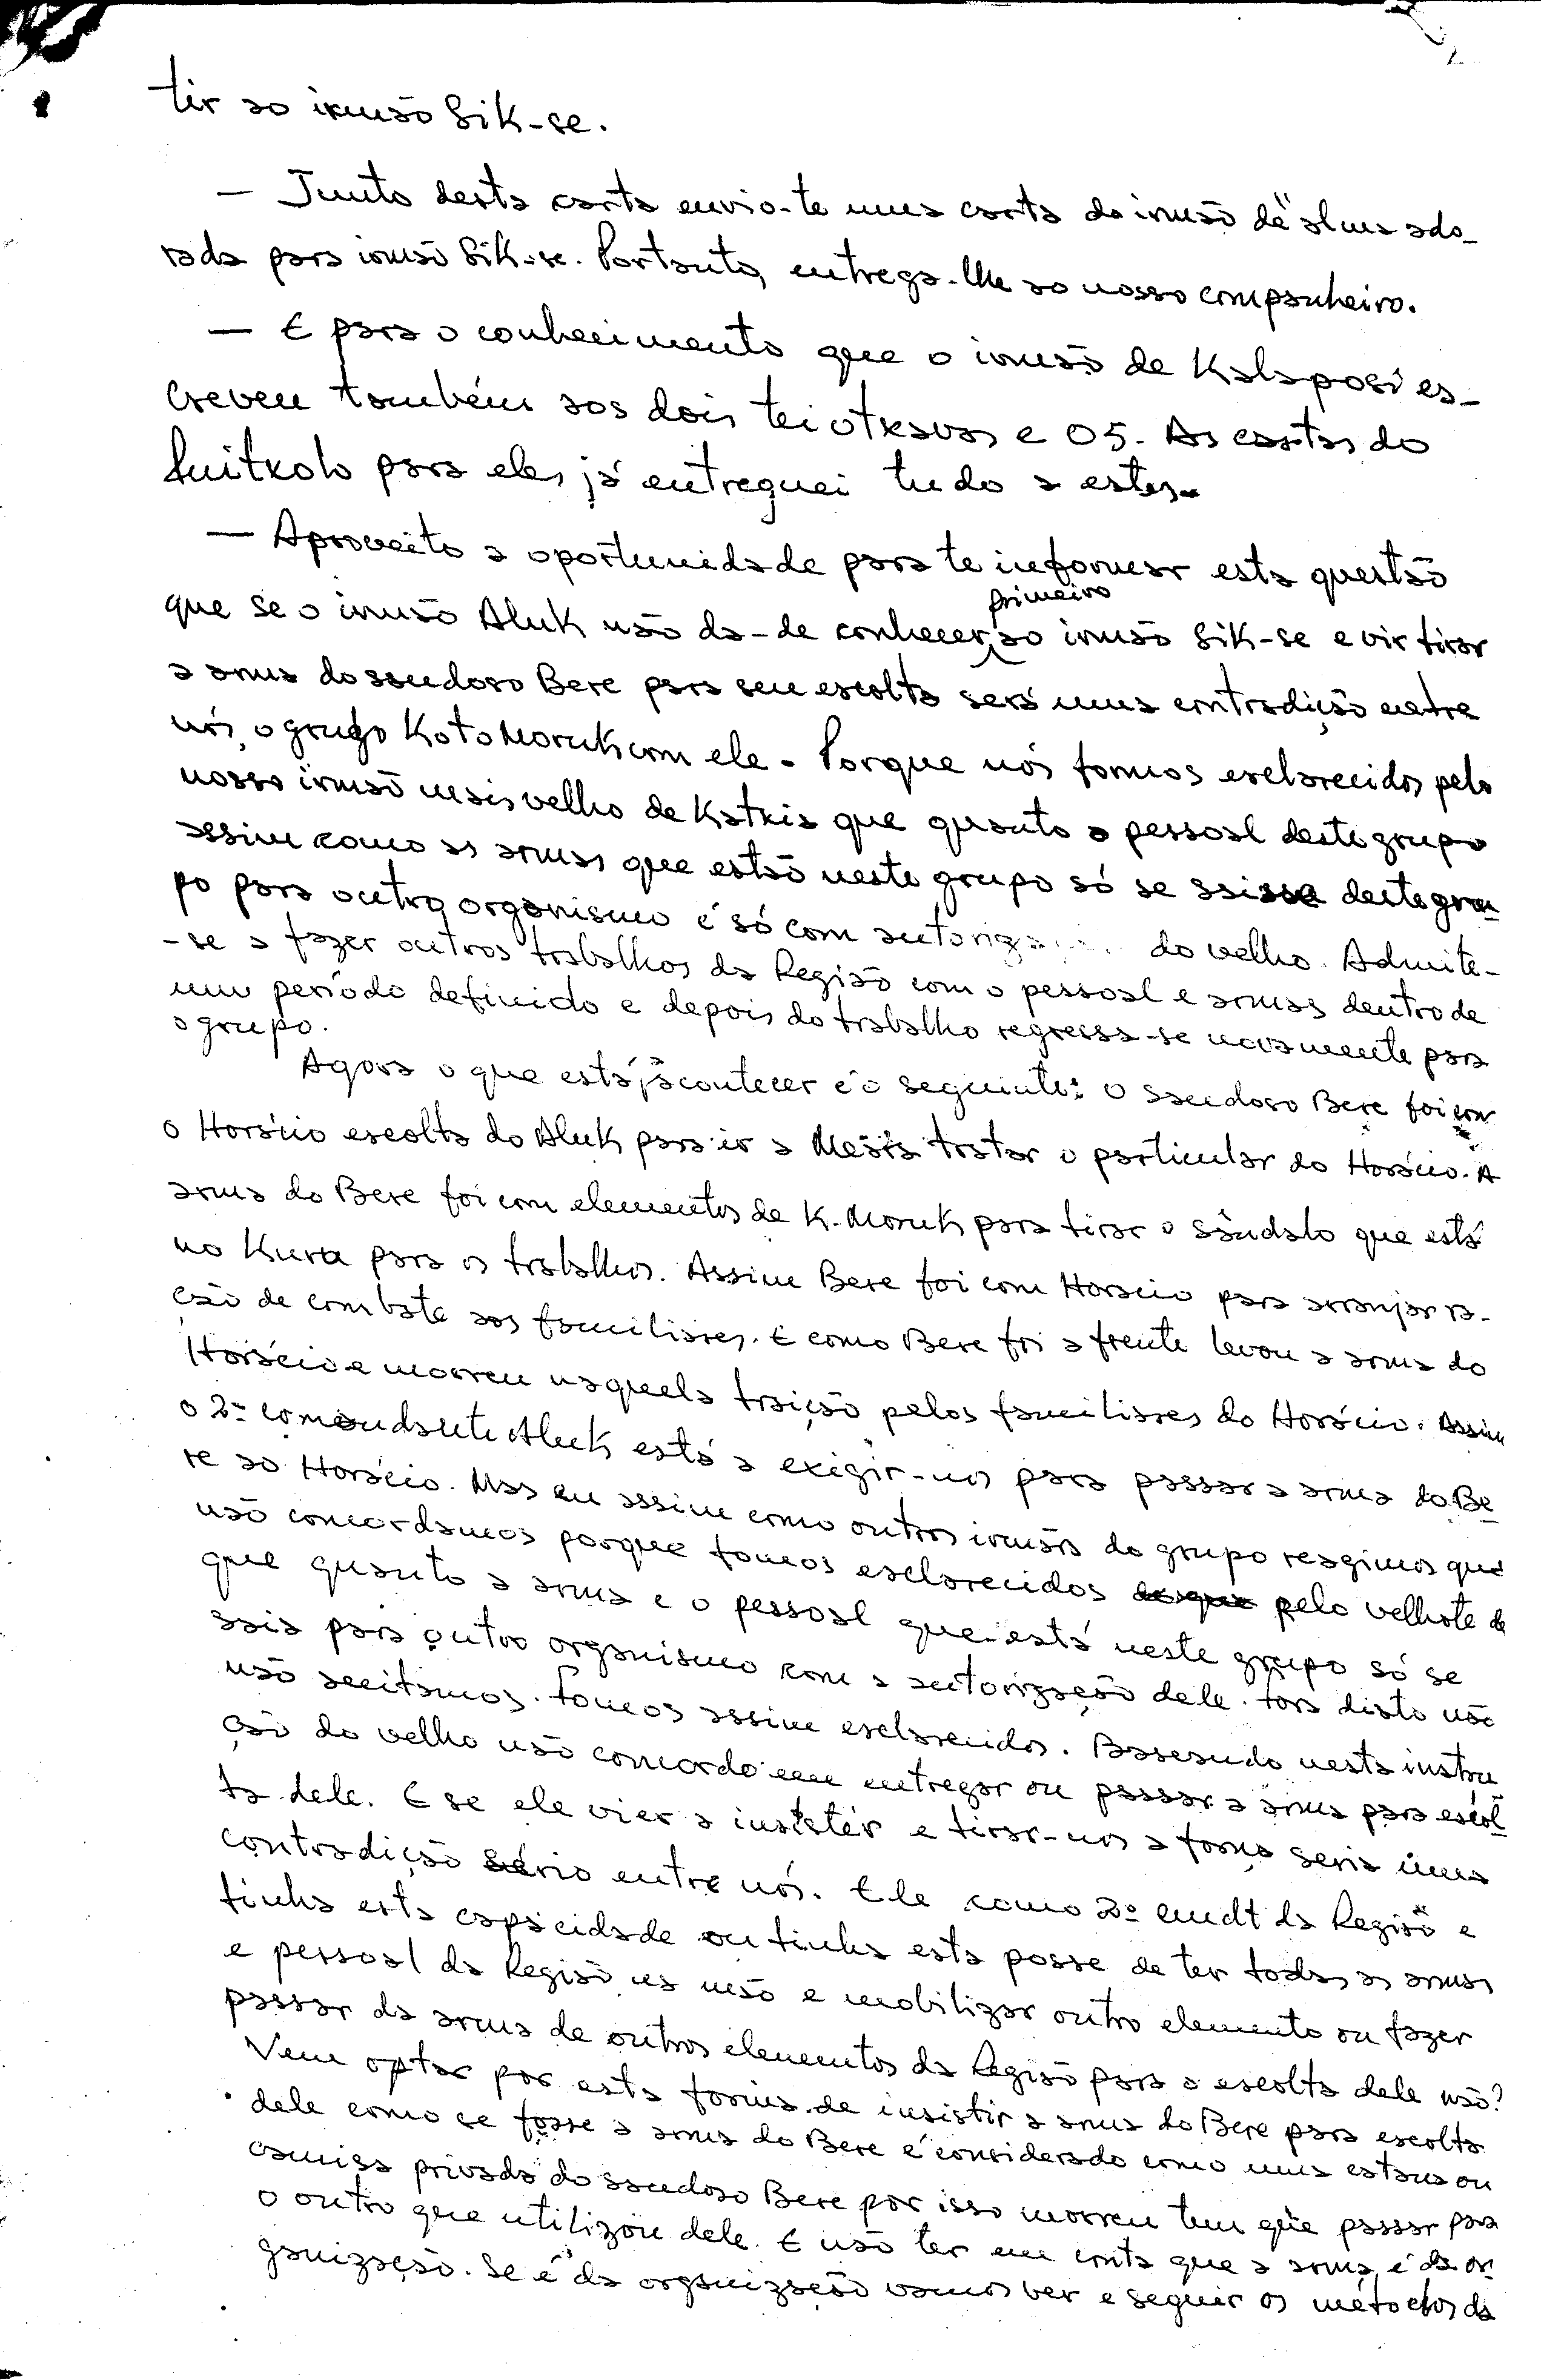 tir ao irmão Sik-se.
— Junto desta carta envio-te uma carta do irmão de alma ado-
rada para irmão Sik-se. Portanto, entrega-lhe ao nosso companheiro.
— E para o conhecimento que o irmão de Kalaposi es-
creveu também aos dois teiotxavas e 05. As cartas do
para eles já entreguei tudo a estes.
— Aproveito a oportunidade para te informar esta questão
que se o irmão Aluk não da-de conhecer primeiro ao irmão Sik-se e vir tirar
a arma do saudoso Bere para seu escolta será uma contradição entre
nós, o grupo Koto Moruk com ele. Porque nós fomos esclarecidos pelo
nosso irmão mais velho de Katxia que quanto o pessoal deste grupo
assim como as armas que estão neste grupo só se saisse deste gru-
po para outro organismo é só com do velho. Admite-
-se a fazer outros trabalhos da Região com o pessoal e armas dentro de
um período definido e depois do trabalho regressa-se novamente para
o grupo.
Agora o que está já a contecer é o seguinte: o saudoso Bere foi com
o Horácio escolta do Aluk para ir a tratar o particular do Horácio. A
arma do Bere foi com elementos de K. Moruk para tirar o sândalo que está
no Kura para os trabalhos. Assim Bere foi com Horácio para arranjar ra-
ção de combate aos familiares. E como Bere foi a frente levou a arma do
Horácio e morreu naquela traição pelos familiares do Horácio. Assim
o 2º comandante Aluk está a exigir-nos para passar a arma do Be
re ao Horácio. Mas eu assim como outros irmãos do grupo reagimos que
não concordamos porque fomos esclarecidos pelo velhote de
que quanto a arma e o pessoal que está neste grupo só se
saia para outro organismo com a autorização dele. Fora disto não
não aceitamos. Fomos assim esclarecidos. Baseando nesta instru
ção do velho não concordo em entregar ou passar a arma para escol-
ta dele. E se ele vier a insistir e tirar-nos a força seria uma
contradição sério entre nós. Ele como 2º cmdt da Região e
tinha esta capacidade ou tinha esta posse de ter todas as armas
e pessoal da Região na mão e mobilizar outro elemento ou fazer
passar da arma de outros elementos da Região para a escolta dele não?
Vem optar por esta forma de insistir a arma do Bere para escolta
dele como se fosse a arma do Bere é considerado como uma ou
camisa privada do saudoso Bere por isso morreu tem que passar para
o outro que utilizou dele. E não ter em conta que a arma é da or-
ganização. Se é da organização vamos ver e seguir os métodos da